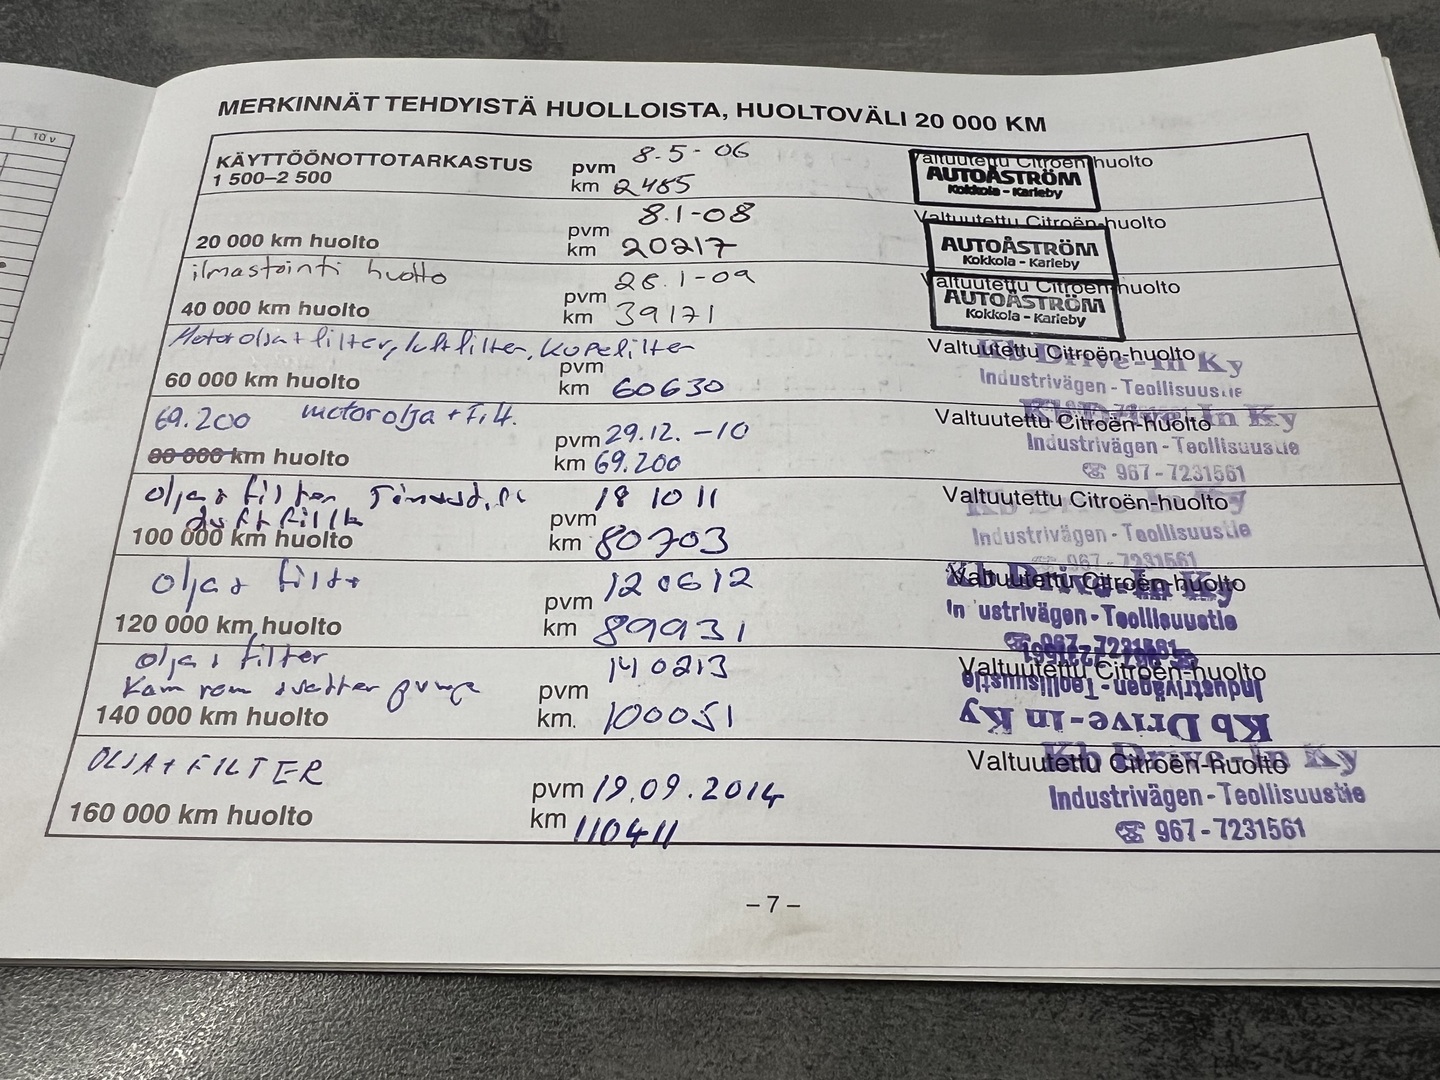 10 v
MERKINNÄT TEHDYISTÄ HUOLLOISTA, HUOLTOVÄLI 20 000 KM
KÄYTTÖÖNOTTOTARKASTUS
1 500–2 500
pvm 8.5-06
km 2485
Valtuutettu Citroën-huolto
AUTOÅSTRÖM
Kokkola - Karleby
20 000 km huolto
pvm 8.1-08
km 20217
Valtuutettu Citroën-huolto
AUTOÅSTRÖM
Kokkola - Karleby
ilmastointi huolto
40 000 km huolto
pvm 28.1-09
km 39171
Valtuutettu Citroën-huolto
AUTOÅSTRÖM
Kokkola - Karleby
Motorolja + filter, luftfilter, kupefilter
60 000 km huolto
pvm
km 60630
Valtuutettu Citroën-huolto
Kb Drive-In Ky
Industrivägen - Teollisuustie
69.200 motorolja + Filt.
80 000 km huolto
pvm 29.12.-10
km 69.200
Valtuutettu Citroën-huolto
Kb Drive-In Ky
Industrivägen - Teollisuustie
☎ 967-7231561
olja + filter
100 000 km huolto
pvm 18 10 11
km 80703
Valtuutettu Citroën-huolto
Kb Drive-In Ky
Industrivägen - Teollisuustie
☎ 967-7231561
olja + filter
120 000 km huolto
pvm 12 06 12
km 89931
Valtuutettu Citroën-huolto
Kb Drive-In Ky
In ustrivägen - Teollisuustie
☎ 967-7231561
olja + filter
Kam rem + vatten pump
140 000 km huolto
pvm 14 02 13
km. 100051
Valtuutettu Citroën-huolto
☎ 967-7231561
Industrivägen - Teollisuustie
Kb Drive-In Ky
OLJA + FILTER
160 000 km huolto
pvm 19.09.2014
km 110411
Valtuutettu Citroën-huolto
Kb Drive-In Ky
Industrivägen - Teollisuustie
☎ 967-7231561
– 7 –